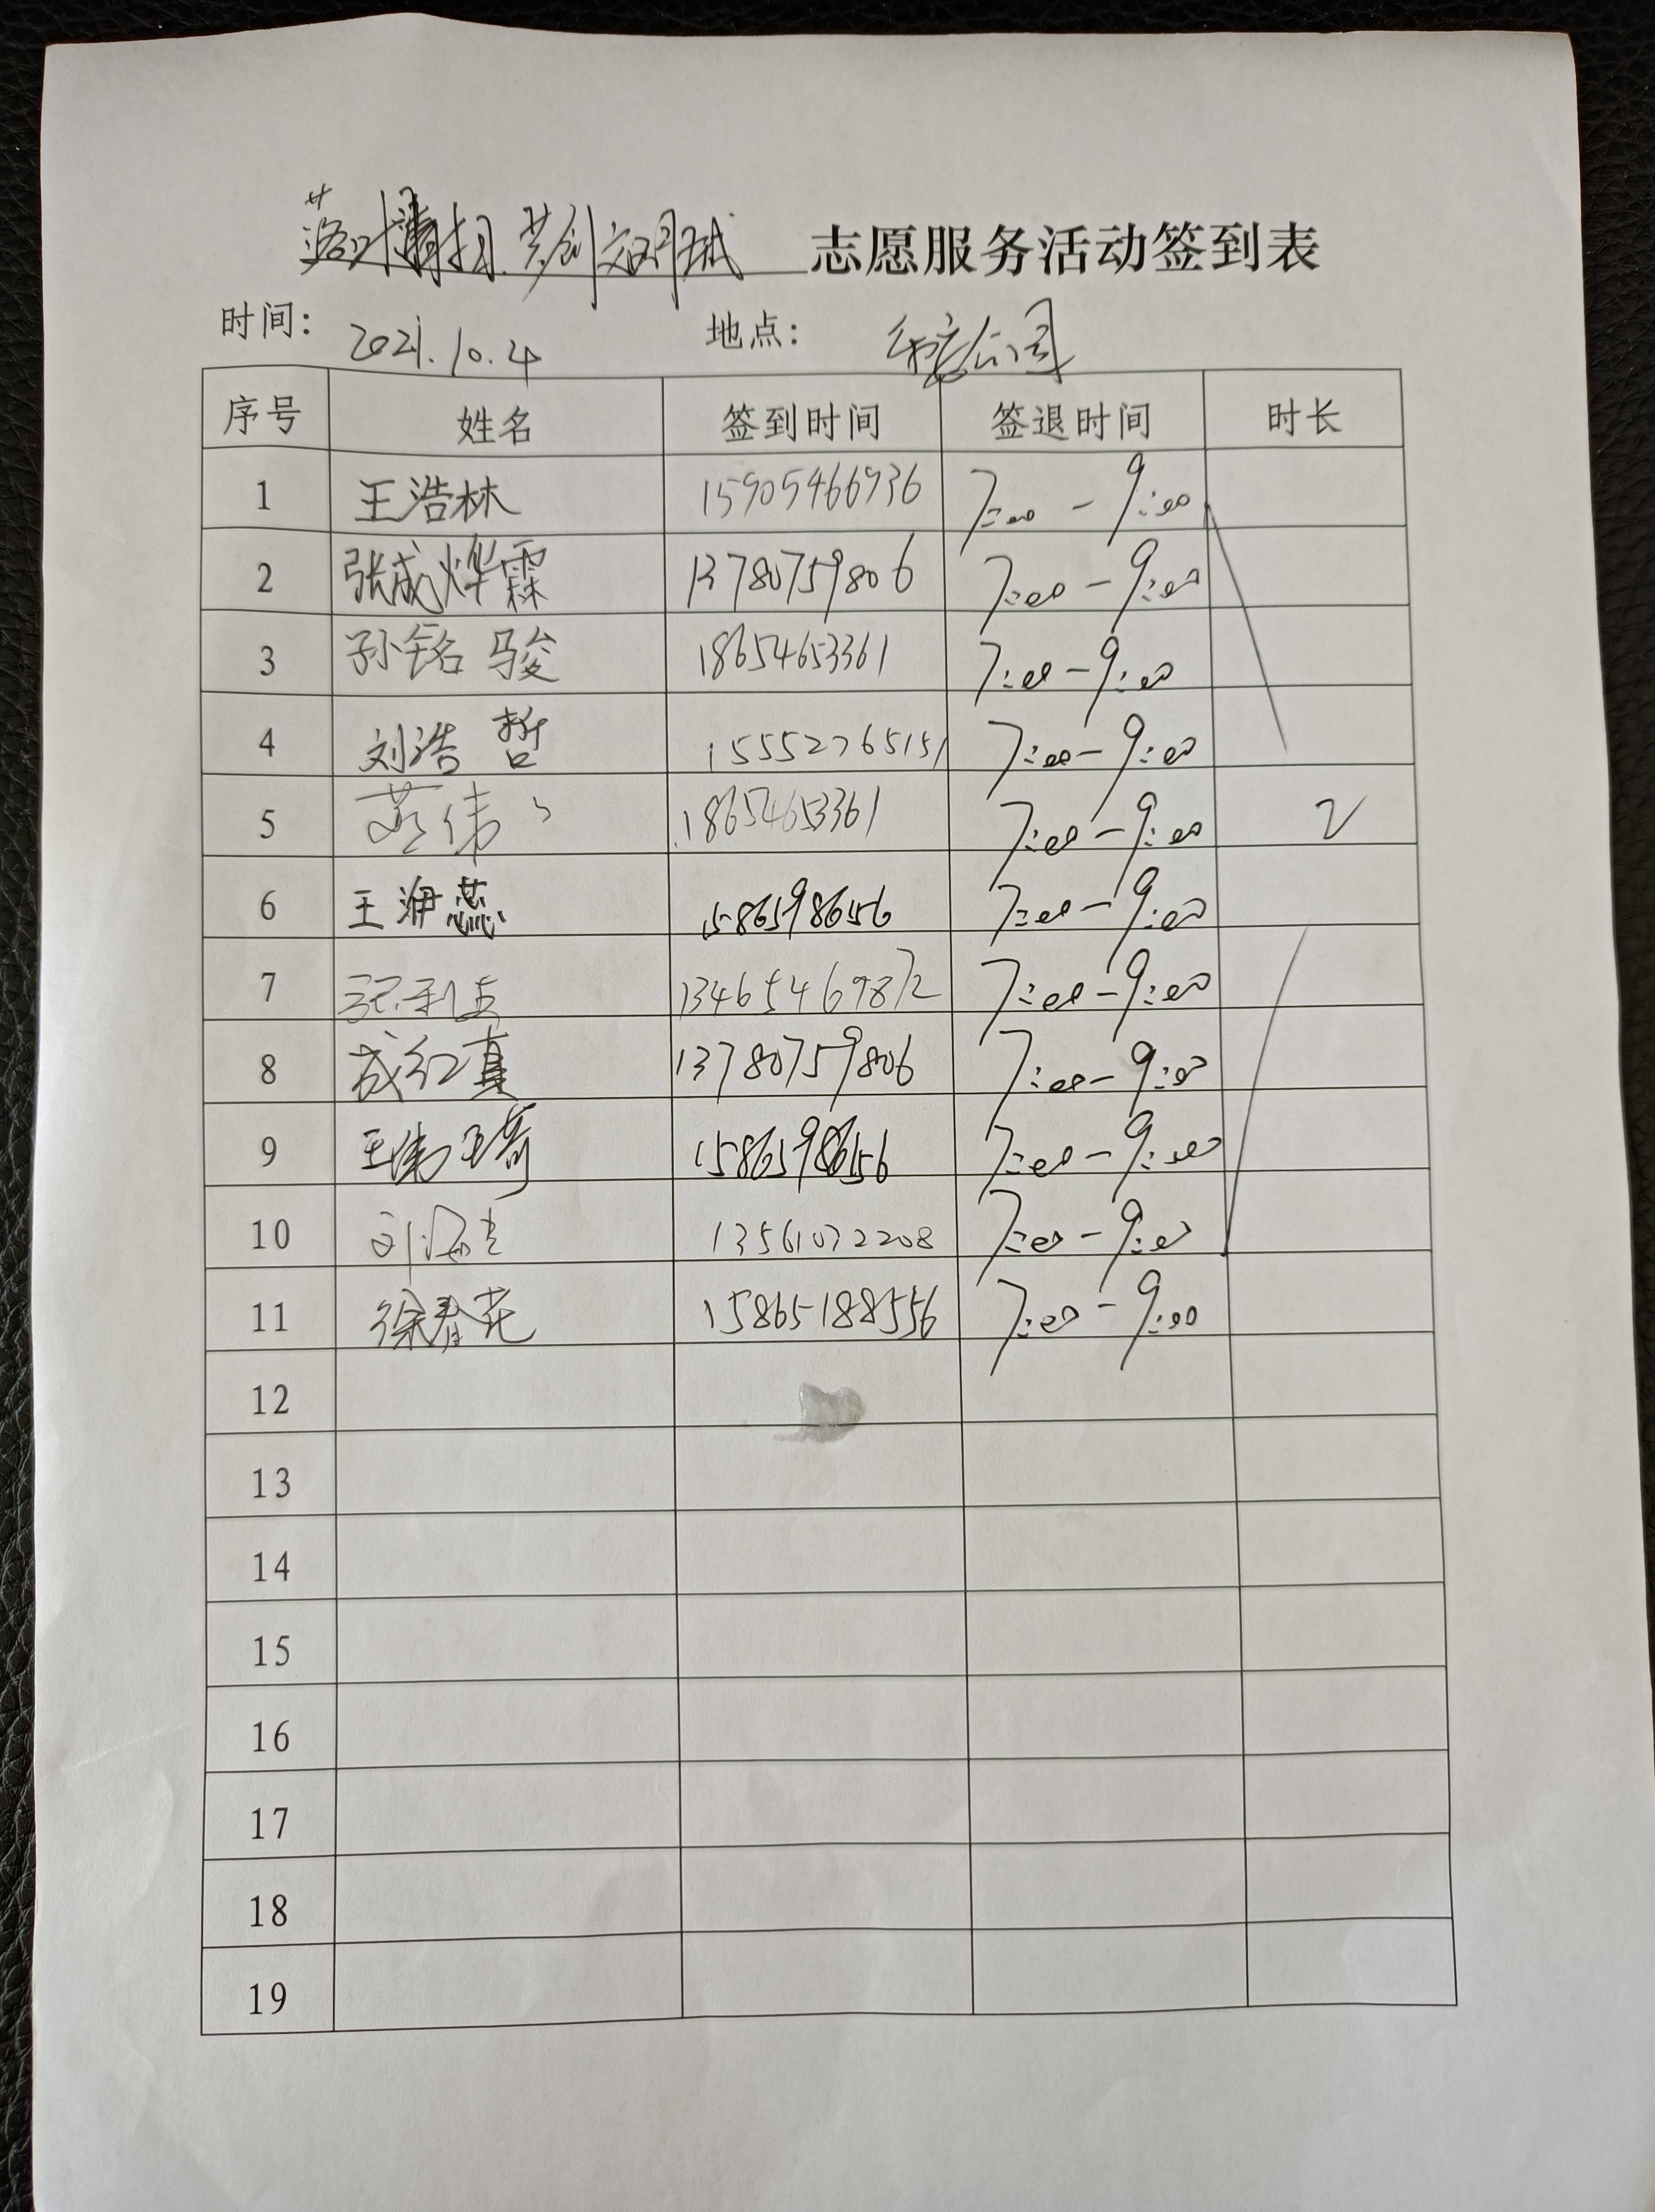 落叶清扫.共创文明城 志愿服务活动签到表
时间: 2021.10.4 地点: 公司
序号 姓名 签到时间 签退时间 时长
1 王浩林 15905466936 7:00 - 9:00
2 张成烨霖 13780759806 7:00 - 9:00
3 孙铭骏 18654653361 7:00 - 9:00
4 刘浩哲 15552765151 7:00 - 9:00
5 伟 18654653361 7:00 - 9:00 2
6 王渆蕊 1586598656 7:00 - 9:00
7 13465469872 7:00 - 9:00
8 成红真 13780759806 7:00 - 9:00
9 王 1586598656 7:00 - 9:00
10 刘 13561072208 7:00 - 9:00
11 徐春花 15865188556 7:00 - 9:00
12
13
14
15
16
17
18
19